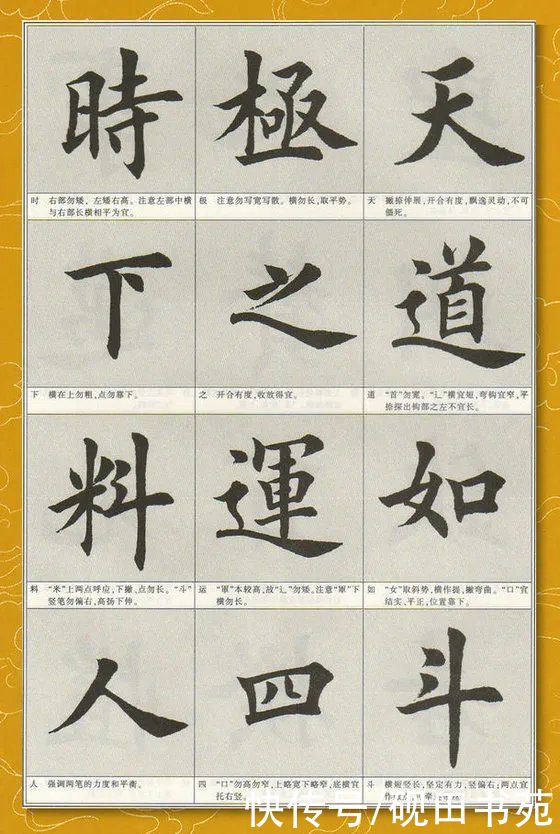 時 極 天
时 右部勿矮,左矮右高。注意左部中横
与右部长横相平为宜。
极 注意勿写宽写散。横勿长,取平势。
天 撇捺伸展,开合有度,飘逸灵动,不可
僵死。
下 之 道
下 横在上勿粗,点勿靠下。
之 开合有度,收放得宜。
道 “首”勿宽。“辶”横宜短,弯钩宜窄,平
捺探出钩部之左不宜长。
料 運 如
料 “米”上两点呼应,下撇、点勿长。“斗”
竖笔勿偏右,高扬下伸。
运 “軍”本较高,故“辶”勿矮,注意“軍”下
横勿长。
如 “女”取斜势,横作提,撇弯曲。“口”宜
结实、平正,位置靠下。
人 四 斗
人 强调两笔的力度和平衡。
四 “口”勿高勿窄,上略宽下略窄,底横宜
托右竖。
斗 横短竖长,坚定有力,竖偏右;两点宜
快传号/砚田书苑